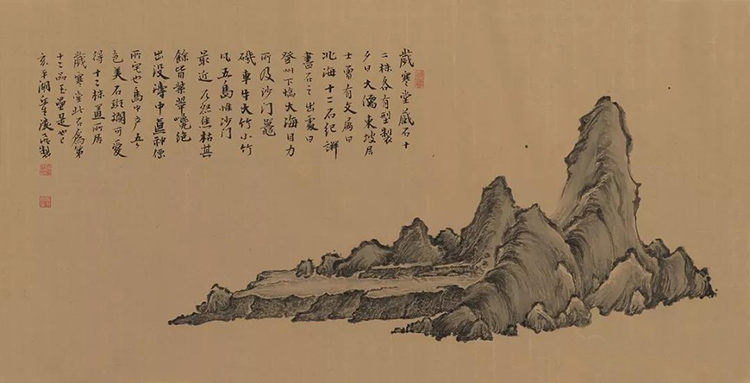 歲寒堂藏石十
二株各有型製
曰大濡東坡居
士嘗有文屬曰
北海十二石記詳
書石之出處曰
登州下臨大海目力
所及沙門鼉
磯車牛大竹小竹
凡五島惟沙門
最近兀然焦枯其
餘皆紫翠巉絕
出沒濤中真神仙
所宅也島中多五
色美石斑斕可愛
得十二株置所居
歲寒堂此石為第
十二品玉壘是也
亥平湖製